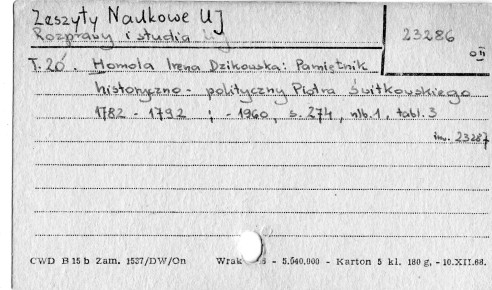 Zeszyty Naukowe UJ
Rozprawy i studia UJ
23286
OII
T. 20. Homola Irena Dzikowska: Pamiętnik
historyczno - polityczny Piotra Świtkowskiego
1782 - 1792 ; - 1960, s. 274, nlb. 1, tabl. 3
inw. 23287
CWD B 15 b Zam. 1537/DW/On Wrak - 5.040.000 - Karton 5 kl. 180 g, - 10.XII.68.